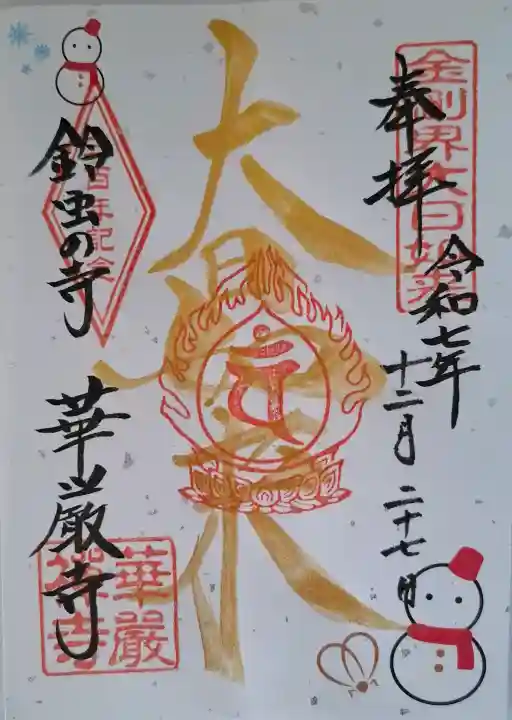 奉拝
令和七年
十二月二十七日
金剛界大日如来
大日如来
鈴虫の寺
華厳寺
百年記念
華嚴禅寺